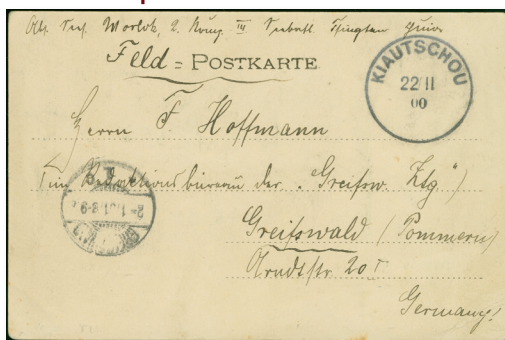 Abs. Seef. Worlok, 2. Komp. III Seebatl. Tsingtau China
Feld = POSTKARTE.
KIAUTSCHOU
22/11
00
Herrn F. Hoffmann
(im Redaktionsbüreau der „Greifsw. Ztg“)
Greifswald / Pommern
Arndtstr 20 I
Germany!